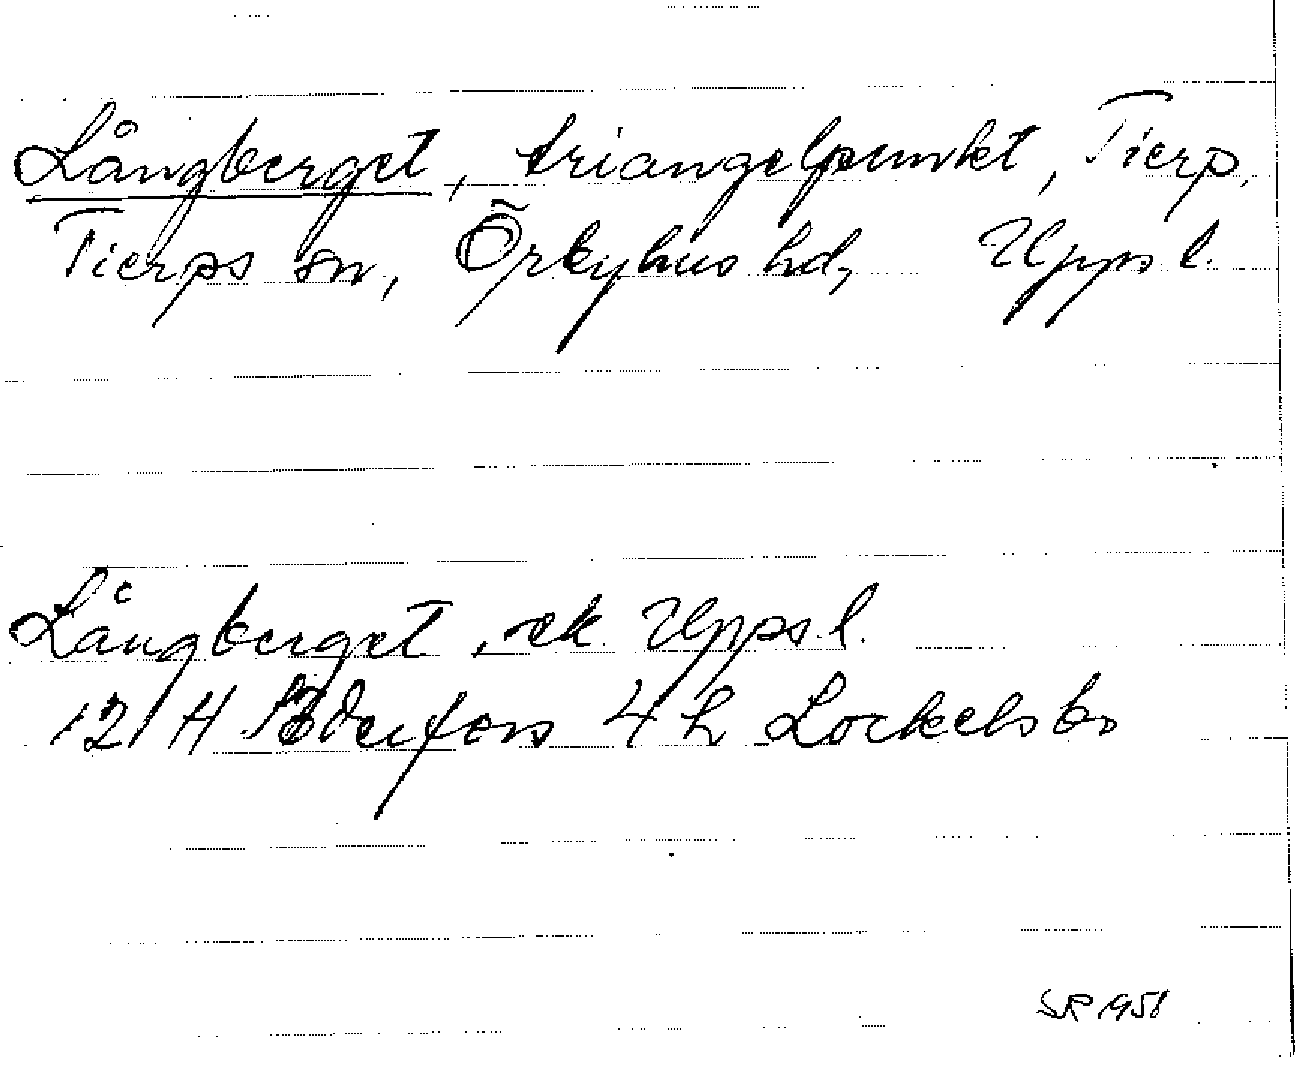 Långberget, triangelpunkt, Tierp,
Tierps sn, Örbyhus hd, Uppsl.
Långberget, ek. Uppsl.
12 H Söderfors 4 h Lockelsbo
SR 1958